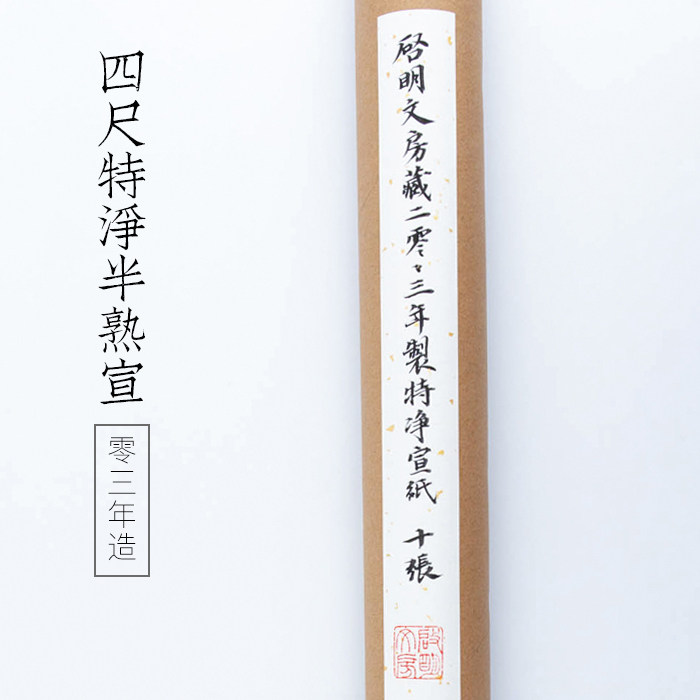 四尺特淨半熟宣
零三年造
啟明文房藏二零〻三年製特净宣紙 十張
啟明文房